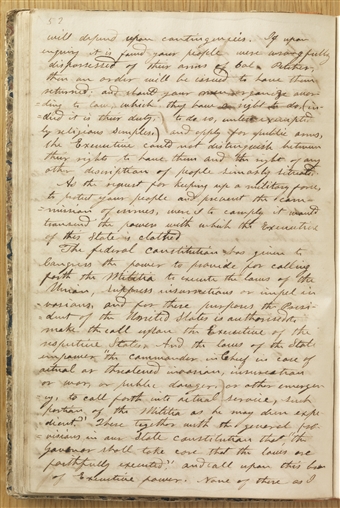 52
will depend upon contingencies. If upon
inquiry it is found your people were wrongfully
dispossessed of their arms by Col. Pitcher,
then an order will be issued to have them
returned: and should your men organize accor-
ding to law, which they have a right to do, (in-
deed it is their duty to do so, unless exempted
by religious scruples) and apply for public arms,
the Executive could not distinguish between
their right to have them and the right of any
other description of people similarly situated.
As to the request for keeping up a military force
to protect your people and prevent the com-
mission of crimes, were I to comply it would
transcend the power with which the Executive
of this State is clothed
The federal Constitution has given to
Congress the power to provide for calling
forth the Militia to execute the laws of the
Union, suppress insurrection or repel in-
vasions, and for these purposes the Presi-
dent of the United States is authorised to
make the call upon the Executive of the
respective States. And the laws of this State
impower "the commander in Chief in case of
actual or threatened invasion, insurrection
or war, or public danger, or other emergen-
cy, to call forth into actual service, such
portion of the Militia as he may deem expe-
dient." These together with the general pro-
visions in our State constitution that, "the
Governor shall take care that the laws are
faithfully executed" and all upon this branch
of Executive power. None of these as I